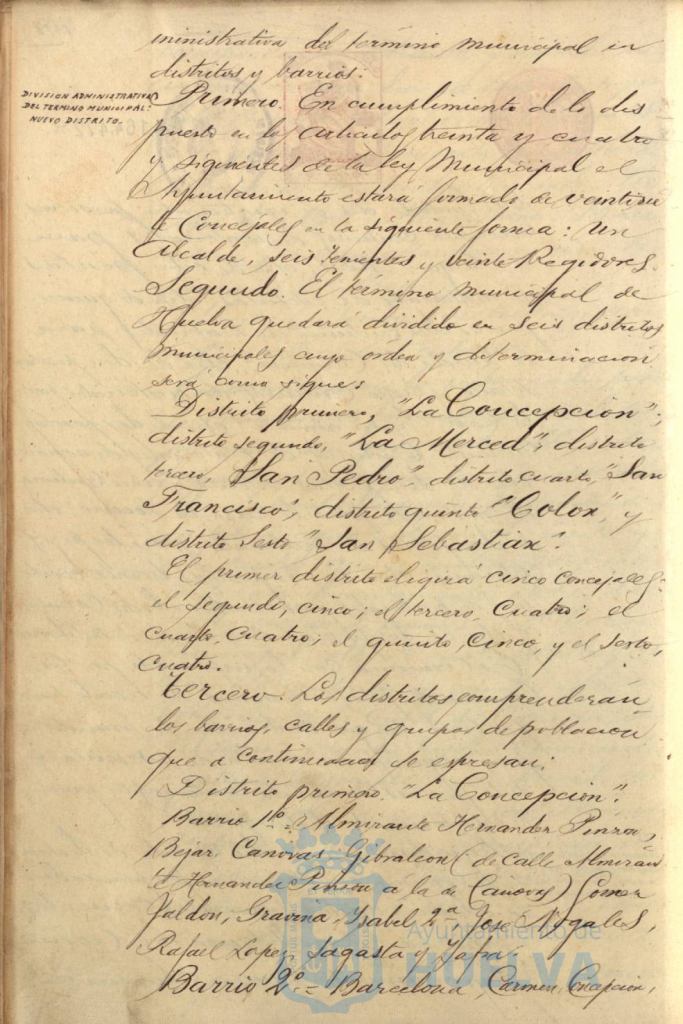 ministrativa del término municipal en
distritos y barrios:
DIVISION ADMINISTRATIVA
DEL TERMINO MUNICIPAL:
NUEVO DISTRITO.
Primero. En cumplimiento de lo dis
puesto en los artículos treinta y cuatro
y siguientes de la ley Municipal el
Ayuntamiento estará formado de veintisie
te Concejales en la siguiente forma: Un
Alcalde, seis tenientes y veinte Regidores.
Segundo. El término municipal de
Huelva quedará dividido en seis distritos
municipales cuyo órden y determinación
será como sigue:
Distrito primero, "La Concepcion";
distrito segundo, "La Merced"; distrito
tercero, "San Pedro", distrito cuarto, "San
Francisco", distrito quinto "Colon", y
distrito Sesto "San Sebastian".
El primer distrito eligirá cinco concejales;
el segundo, cinco; el tercero, cuatro; el
cuarto, cuatro; el quinto, cinco, y el sexto,
cuatro.
tercero. Los distritos comprenderán
los barrios, calles y grupos de población
que a continuacion se espresan:
Distrito primero. "La Concepcion".
Barrio 1º = Almirante Hernandez Pinzon,
Bejar, Canovas, Gibraleon (de calle Almiran
te Hernandez Pinzon á la de Canovas) Gomez
Jaldon, Gravina, Isabel 2ª, Jose Nogales,
Rafael Lopez, Sagasta y Zafra.
Barrio 2º = Barcelona, Carmen, Concepcion,
Ayuntamiento de
HUELVA